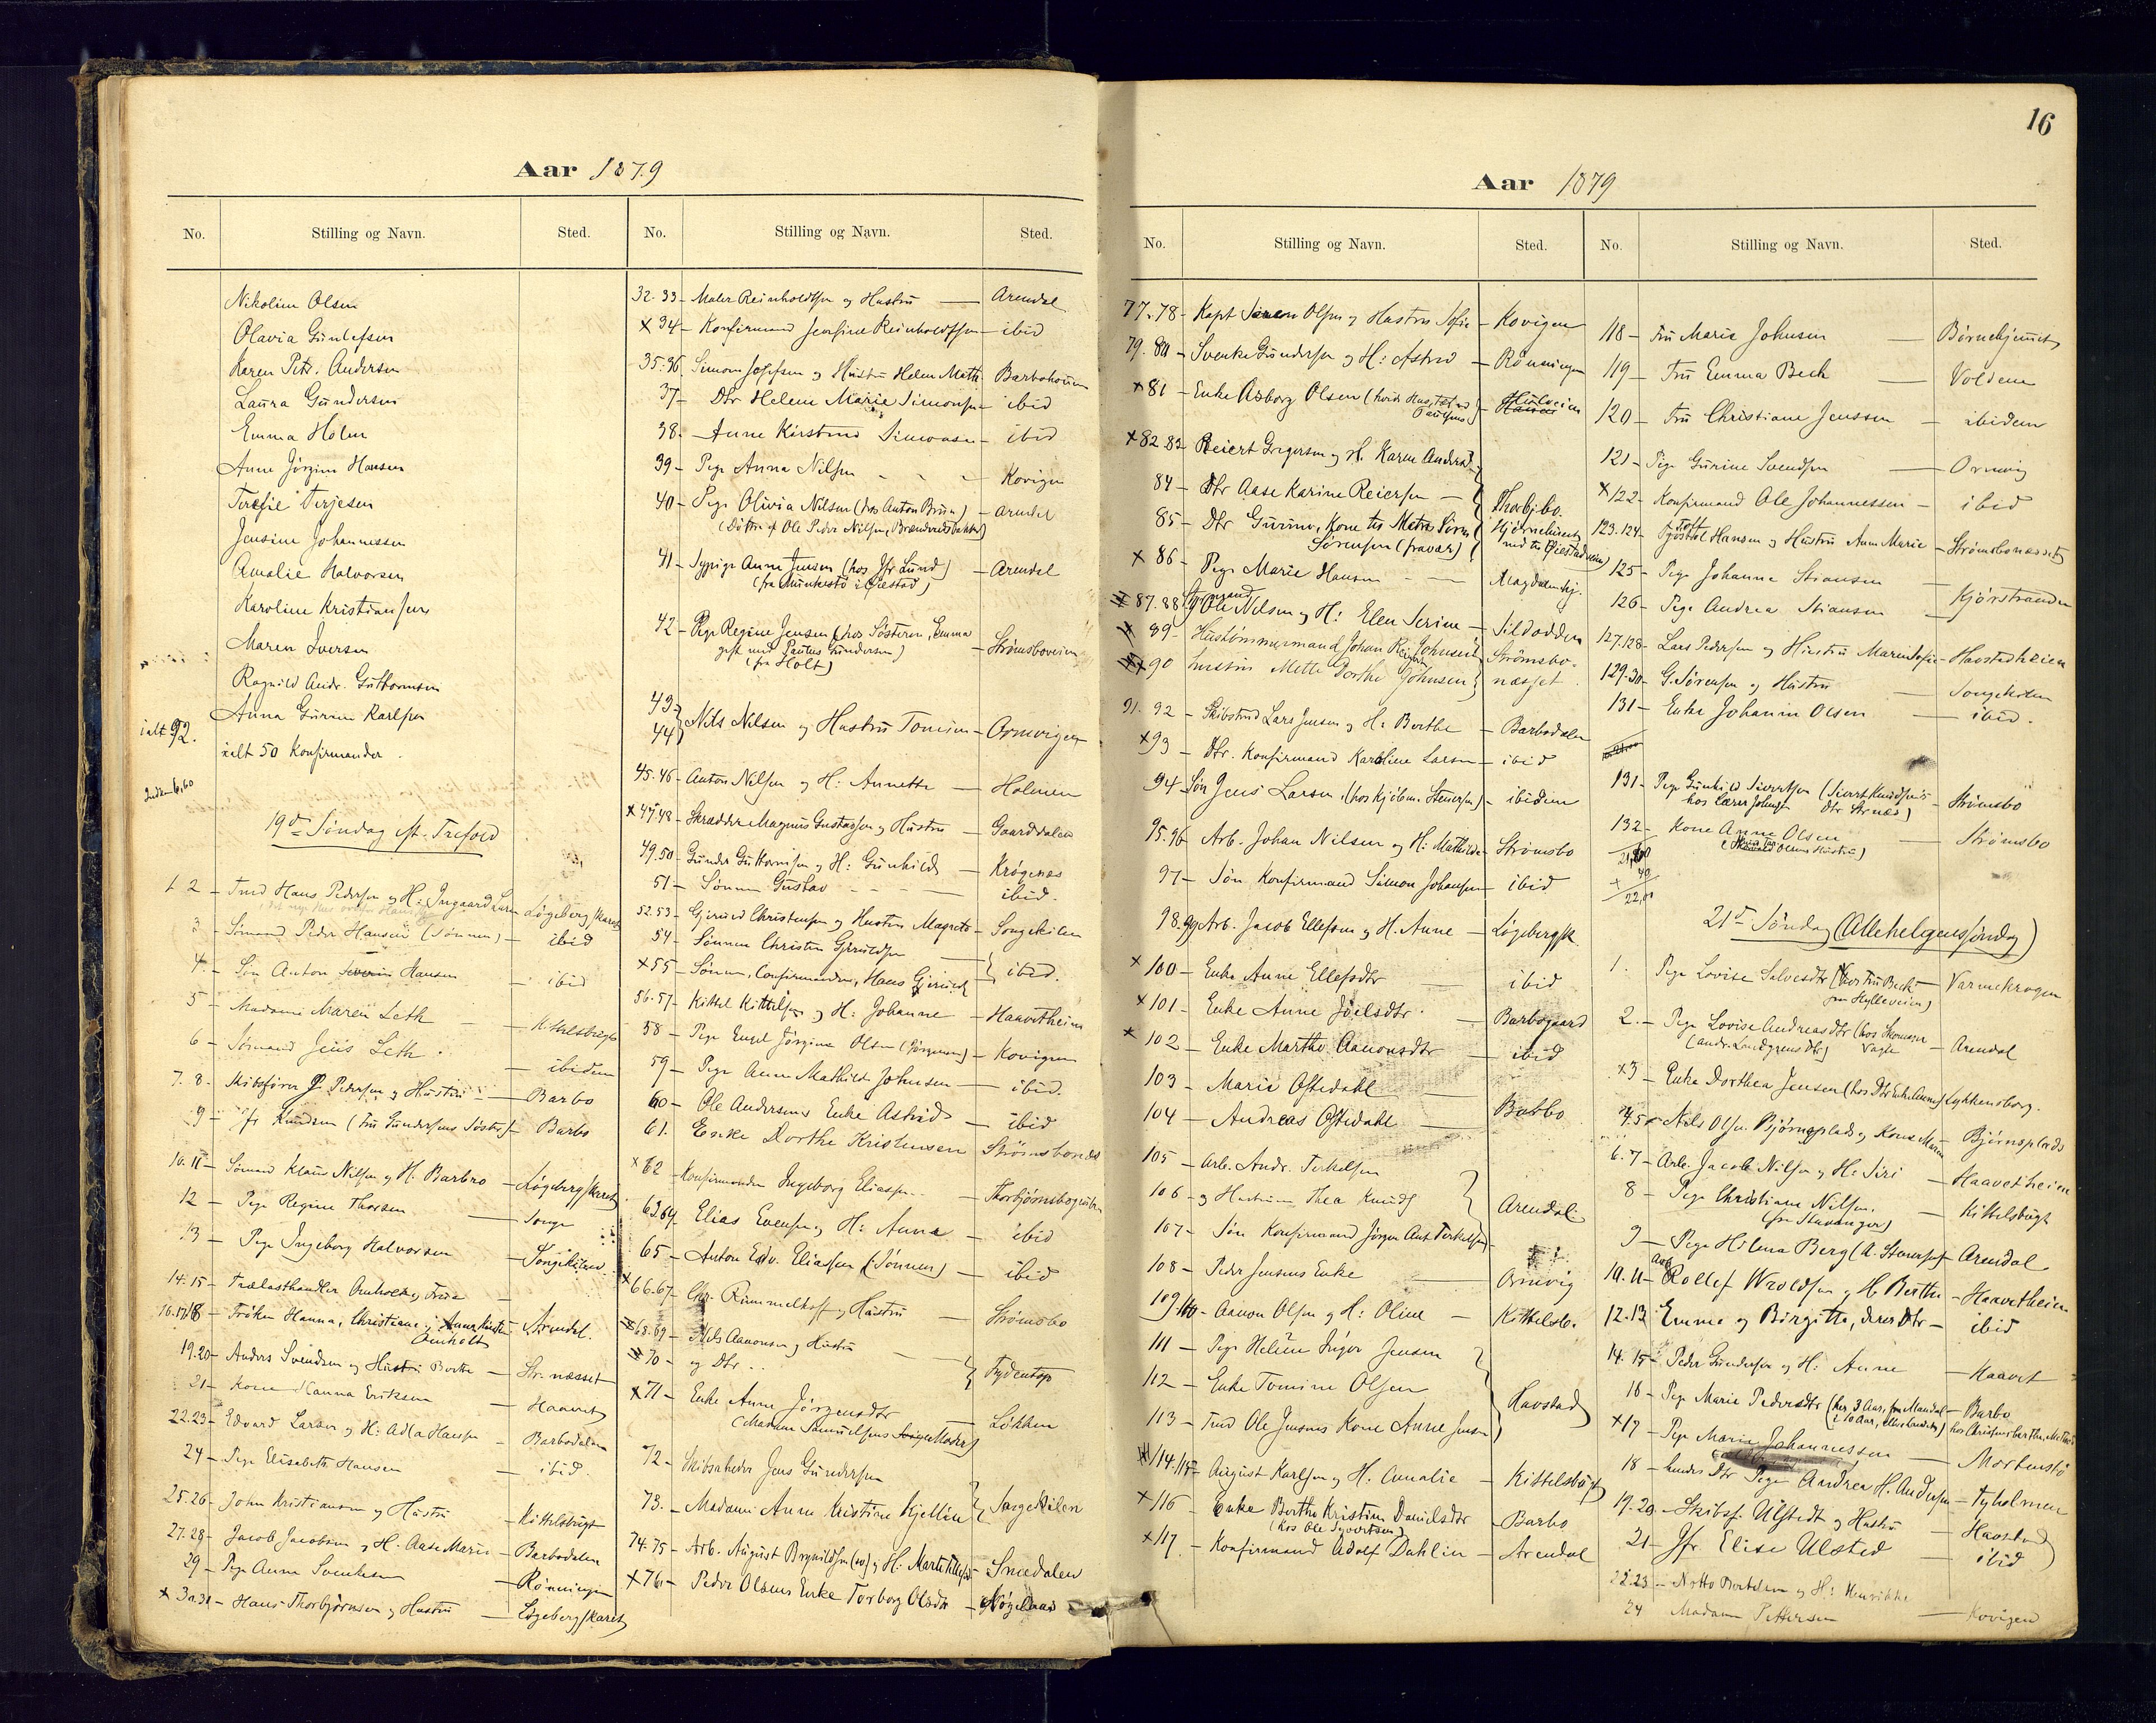 Aar 1879
No. Stilling og Navn. Sted.
Nikoline Olsen
Olavia Gundersen
Karen Petr. Andersen
Laura Gundersen
Emma Holm
Anne Jörgine Hansen
Terje Terjesen
Jensine Johannessen
Amalie Halvorsen
Karoline Kristiansen
Maren Iversen
Ragnild Andr. Guttormsen
Anna Gurine Karlsen
ialt 92.
ialt 50 Konfirmander.
19de Söndag eft. Trefold
1. 2 - Tmd Hans Pedersen og H: Ingaard Larsen Lögebergskaret
3 - Sömand Peder Hansen (Sönnen) - ibid
4. - Sön Anton Severin Hansen - ibid
5 - Madame Maren Leth - Kittelsbugt
6 - Sömand Jens Leth - ibidem
7. 8. - Skibsförer J. Pedersen og Hustru - Barbo
9 - Jfr Knudsen (Fru Gundersens Söster) - Barbo
10. 11 - Sömand Klaus Nilsen og H. Barbro - Lögebergskaret
12 - Pige Regine Thorsen - Songe
13 - Pige Ingeborg Halvorsen - Songekilen
14. 15 - Trælasthandler Amholt og Frue -
16.17.18 - Fröken Hanna, Christiane, Anna Kirstine Amholt Arendal.
19.20 - Anders Svendsen og Hustru Berthe - Str. næsset
21 - Kone Hanna Eriksen - Haavet
22.23 - Edvard Larsen og H: Adla Hansen - Barbodalen
24 - Pige Elisabeth Hansen - ibid.
25.26 - John Kristiansen og Hustru - Kittelsbugt
27.28 - Jacob Jacobsen og H. Aase Marie - Barbodalen
29 - Pige Anne Svenksen - Rönningen
x 30.31 - Hans Thorbjörnsen og Hustru - Lögebergskaret
No. Stilling og Navn. Sted.
32.33 - Maler Reinholdtsen og Hustru - Arendal
x 34 - Konfirmand Jensine Reinholdtsen - ibid
35.36. Simon Josefsen og Hustru Helene Math. Barbohouen
37 - Dtr Helene Marie Simonsen - ibid
38. - Anne Kirstine Simonsen - ibid
39 - Pige Anna Nilsen - Kovigen
40 - Pige Olivia Nilsen (hos Anton Bruun) - Arendal
(Datter af Ole Peder Nilsen, Brændevinsbakken)
41 - Sypige Anne Jensen (hos Jfr Lund) - Arendal
(fra Munkestö i Öiestad)
42 - Pige Regine Jensen (hos Sösteren, Emma
gift med Paulus Gundersen) - Strömsboveien
(fra Holt)
43 }
44 } Nils Nilsen og Hustru Tomine - Ormvigen
45.46 - Anton Nilsen og H: Annette - Holmen
x 47.48 - Skrædder Magnus Gustavsen og Hustru - Gaarddalen
49.50 - Gunder Guttormsen og H: Gunhild - Krögenes
51 - Sönnen Gustav - ibid.
52.53 - Gjeruld Christensen og Hustru Magrete - Songekilen
54 - Sönnen Christen Gjeruldsen
x 55 - Sönnen, Confirmanden, Hans Gjeruldsen } ibid.
56.57 - Kittel Kittelsen og H: Johanne - Haavetheien
58 - Pige Engel Jörgine Olsen (Jörgensen) - Kovigen
59 - Pige Anne Mathilde Johnsen - ibid.
60 - Ole Andersens Enke Astrid - ibid
61. Enke Dorthe Kristensen Strömsbonæs
x 62 - Konfirmanden Ingeborg Eliassen - Thorbjörnsbogruben
63.64. Elias Evensen og H: Anna - ibid
65 - Anton Edv. Eliassen (Sönnen) - ibid
x 66.67. Chr. Rummelhoff og Hustru - Strömsbo
68.69 - Nils Aanonsen og Hustru
70 - og Dtr. } Frydentop
x 71 - Enke Anne Jörgensdtr - Lökken
(Madam Samuelsens Moder)
72 - Skibsreder Jens Gundersen
73. - Madame Anne Kristine Kjelline } Songekilen
74.75 - Arb. August Brynildsen og H: Marte Tellefsd. - Smedalen
x 76 - Peder Olsens Enke Torborg Olsdtr

16
Aar 1879
No. Stilling og Navn. Sted.
77.78 - Kapt Sören Olsen og Hustru Sofie - Kovigen
79.80 - Svenke Gundersen og H: Astrid - Rönningen
x 81 - Enke Aasborg Olsen
x 82.83 - Reiert Gregersen og H. Karen Andersd.
84 - Dtr Aase Karine Reiersen - Thorbjbo.
85 - Dtr Gurine, Kone til Matr. Sörn Hjörnehuset
Sörensen (fravær) ned til Öiestadveien
x 86 - Pige Marie Hansen - Magdalenehj.
87.88 Styrmand Ole Nilsen og H: Elen Serine - Sildodden
89 - Hustömmermand Johan Reinert Johnsen
x 90 Hustru Mette Dorthe Johnsen } Strömsbonæsset
91. 92 - Skibstmd Lars Jensen og H: Berthe - Barbodalen
x 93 - Dtr. Konfirmand Karoline Larsen - ibid
94 - Sön Jens Larsen, (hos Kjöbm. Stenersen) - ibidem
95.96 Arb. Johan Nilsen og H: Mathilde - Strömsbo
97 - Sön Konfirmand Simon Johansen - ibid
98.99 Arb. Jacob Ellefsen og H. Anne - Lögebergsk.
x 100 - Enke Anne Ellefsdtr - ibid
x 101 - Enke Anne Joelsdtr. - Barbogaard
x 102 - Enke Marthe Aanonsdtr - ibid
103 - Marie Oftedahl
104 - Andreas Oftedahl - Barbo
105 - Arb. Andr. Terkelsen
106 - og Hustruen Thea Knuds } Arendal
107 - Sön Konfirmand Jörgen Ant. Terkelsen
108 - Peder Jensens Enke - Ormvig
109.110 - Aanon Olsen og H: Oline - Kittelsb.
111 - Pige Helene Inger Jensen
112 - Enke Tomine Olsen } Havstad
113 - Tmd Ole Jensens Kone Anne Jensen
114.115 - August Karlsen og H. Amalie - Kittelsbugt
x 116 - Enke Berthe Kristine Danielsdtr - Barbo
(hos Ole Syvertsen)
x 117. - Konfirmand Adolf Dahlin - Arendal
No. Stilling og Navn. Sted.
118 - Fru Marie Johnsen - Börnehjemmet
119 - Fru Emma Bech - Voldene
120 - Fru Christiane Jenssen - ibidem
121 - Pige Gurine Svendsen - Ormvig
x 122 - Konfirmand Ole Johannessen - ibid
123.124 - Hansen og Hustru Ann Marie - Strömsbonæsset
125 - Pige Johanna Stiansen
126 - Pige Andrea Stiansen - Kjörstranden
127.128 - Lars Pedersen og Hustru Maren Sofie - Havstadheien
129.30 - G. Sörensen og Hustru - Songekilen
131 - Enke Johanne Olsen - ibid.
131 - Pige Gunhild Sivertsen (Sivert Knudsens - Strömsbo
hos Lærer Johnsen Dtr Strnæs)
132 - Kone Anne Olsen - Strömsbo
40
22,00
21de Söndag (Allehelgenssöndag)
1. Pige Lovise Salvesdtr (hos Fru Bech - Varmekrogen
fra Hylleveien)
2. - Pige Lovise Andreasdtr (hos Skomager Vagle - Arendal
(Andr. Lundgrens Dtr)
x 3 - Enke Dorthea Jensen Lykkensborg.
4.5 - Nils Olsen Björnsplads og Kone Maren Björnsplads
6.7 - Arb. Jacob Nilsen og H: Siri - Haavetheien
8 - Pige Christiane Nilsen. - Kittelsbugt
(fra Stavanger)
9 - Pige Helena Berg (A. Stenersen) - Arendal
10.11 - Arb. Rollef Wroldsen og H Berthe - Haavetheien
12.13 Emma og Birgitte, deres Dtr - ibid
14.15 - Peder Gundersen og H: Anne - Haavet
16 - Pige Marie Pedersdtr (her 3 Aar, fra Mandal - Barbo
x 17 - Pige Marie Johannessen - Mortensbö
18 - hendes Dtr Pige Andrea H. Andersen - Tyholmen
19.20 - Skibsf. Ulstedt og Hustru - Havstad
21 - Jfr Elise Ulsted - ibid
22.23 - Notto Bertelsen og H: Henrikke
24 Madam Pettersen - Kovigen